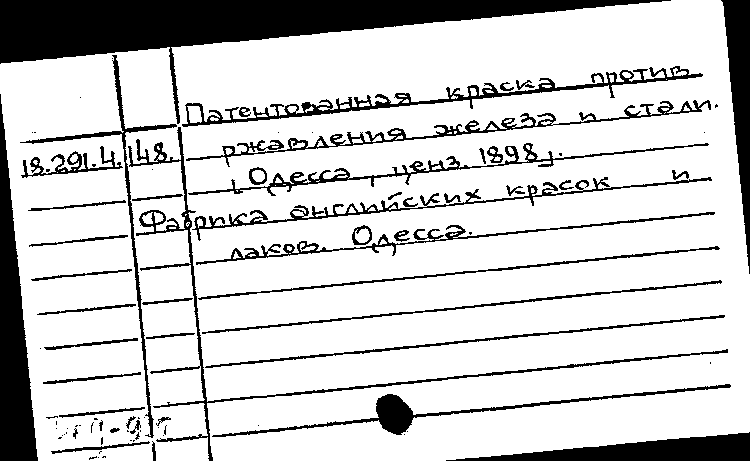 Патентованная краска против
18.291.4.148. ржавления железа и стали.
[Одесса, ценз. 1898].
Фабрика английских красок и
лаков. Одесса.